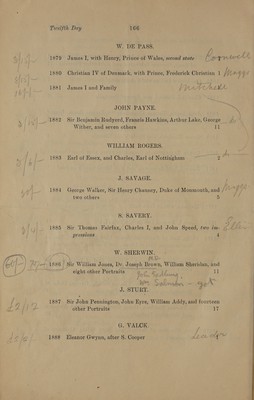 Twelfth Day 166
W. DE PASS.
1879 James I, with Henry, Prince of Wales, second state
1880 Christian IV of Denmark, with Prince, Frederick Christian 1
1881 James I and Family
JOHN PAYNE.
1882 Sir Benjamin Rudyerd, Francis Hawkins, Arthur Lake, George
Wither, and seven others 11
WILLIAM ROGERS.
1883 Earl of Essex, and Charles, Earl of Nottingham 2
J. SAVAGE.
1884 George Walker, Sir Henry Chauncy, Duke of Monmouth, and
two others 5
S. SAVERY.
1885 Sir Thomas Fairfax, Charles I, and John Speed, two im-
pressions 4
W. SHERWIN.
1886 Sir William Jones, Dr. Joseph Brown, William Sheridan, and
eight other Portraits 11
J. STURT.
1887 Sir John Pennington, John Eyres, William Addy, and fourteen
other Portraits 17
G. VALCK.
1888 Eleanor Gwynn, after S. Cooper